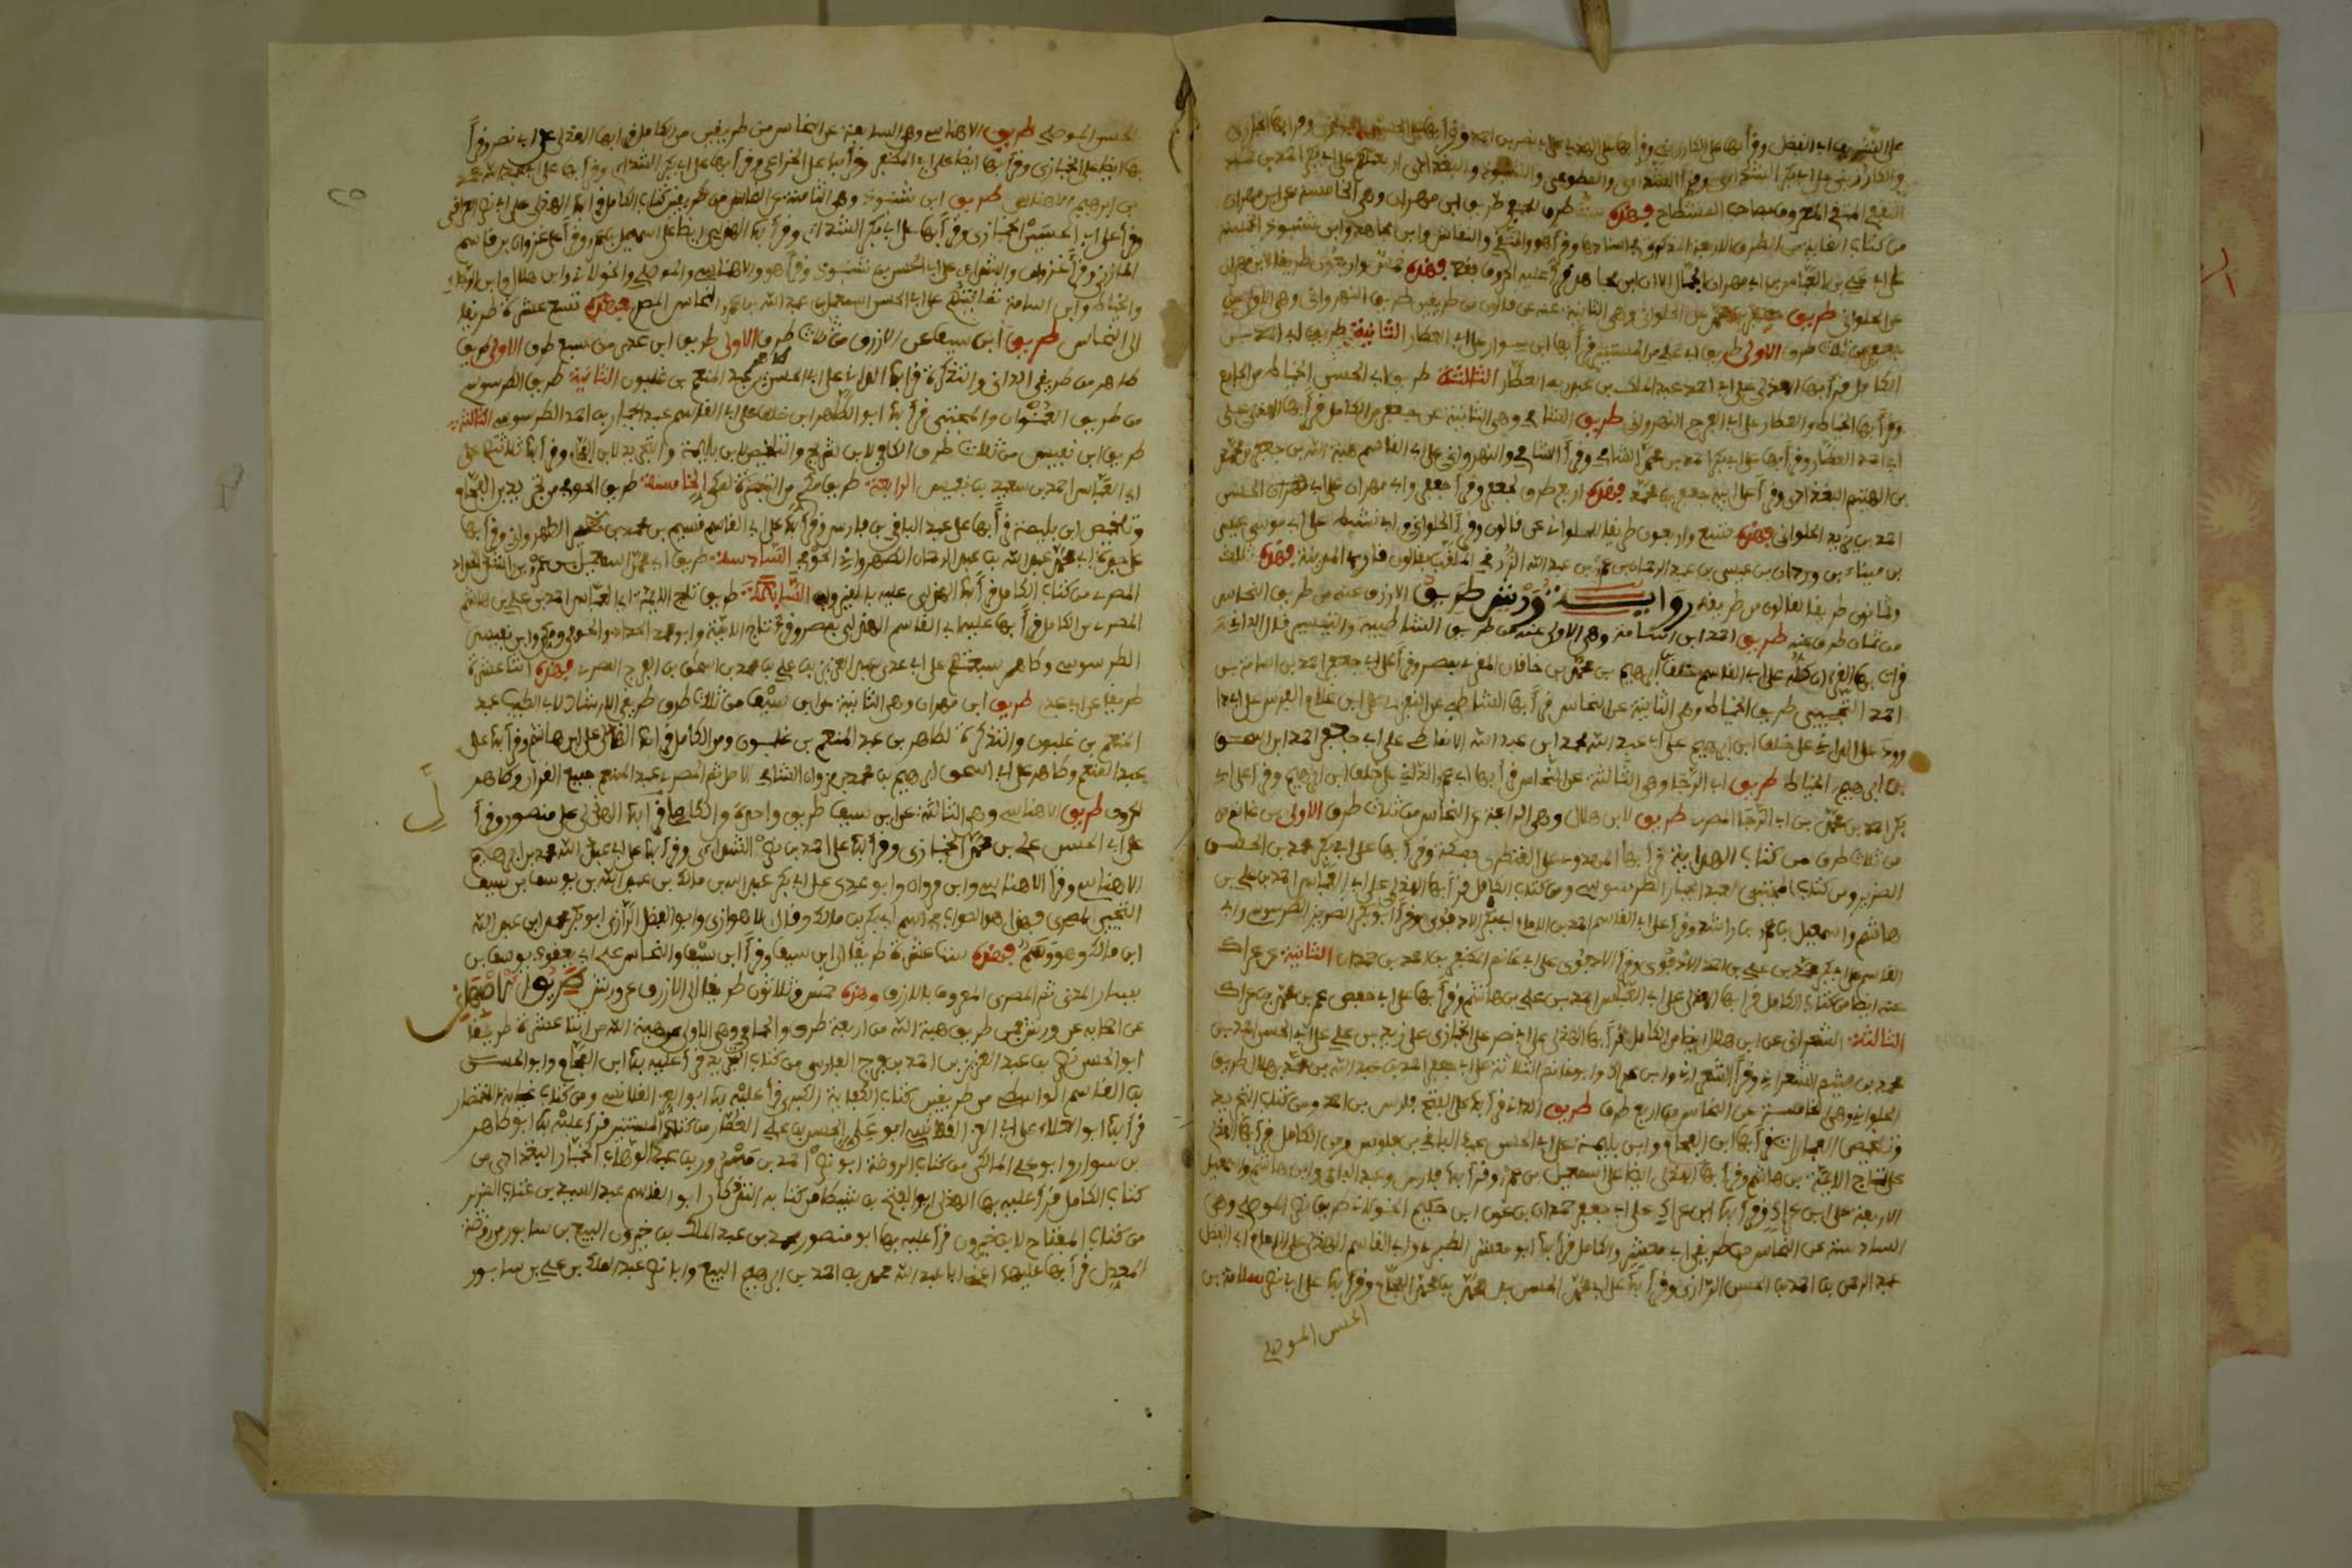 على الشريف ابى الفضل وقرأ بها على الكارزينى وقرأ بها على الهذلى على ابى نصر بن احمد وقرأ بها على الخبازى
والكارزينى على ابى بكر الشذائى وقرأ الشذائى والمطوعى والشنبوذى والبغدادى اربعتهم على ابى بكر احمد بن
فهذه ست طرق للجمع طريق ابن مهران وهى الخامسة عن ابن مهران
من كتاب الغاية من الطرق الاربعة المذكورة باسنادها وقرأ هو والنقاش وابن مجاهد وابن شنبوذ الخمسة
على ابى على بن العباس بن ابى مهران الجمال الا ان ابن مجاهد قرأ عليه الحروف فقط فهذه خمس واربعون طريقا لابن مهران
عن الحلوانى طريق جعفر بن محمد عن الحلوانى وهى الثانية عنه عن قالون من طريقين طريق النهروانى وهى الاولى عن
جعفر من ثلاث طرق الاولى طريق ابى على من المستنير قرأ بها ابن سوار على ابى على العطار الثانية طريق ابى احمد من
الكامل قرأ بها الهذلى على ابى احمد عبد الملك بن عبدويه العطار الثالثة طريق ابى الحسن الخياط من الجامع
وقرأ بها الخياط والعطار على ابى الفرج النهروانى طريق الشامى وهى الثانية عن جعفر من الكامل قرأ بها الهذلى على
ابى احمد العطار وقرأ بها على ابى بكر احمد بن محمد الشامى وقرأ الشامى والنهروانى على ابى القاسم هبة الله بن جعفر بن محمد
بن الهيثم البغدادى وقرأ على ابيه جعفر بن محمد فهذه اربع طرق لجعفر وقرأ جعفر وابن مهران على ابى الحسن
احمد بن يزيد الحلوانى فهذه تسع واربعون طريقا للحلوانى عن قالون وقرأ الحلوانى وابو نشيط على ابى موسى عيسى
بن ميناء بن وردان بن عيسى بن عبد الرحمان بن عمر بن عبد الله الزرقى الملقب بقالون قارئ المدينة فهذه ثلاث
وثمانون طريقا لقالون من طريقيه رواية ورش طريق الازرق عنه من طريق النحاس
من ثمان طرق عنه طريق احمد ابن اسامة وهى الاولى عنه من طريق الشاطبية والتيسير قال الدانى
قرأت بها القرءان كله على ابى القاسم خلف ابن ابرهيم بن محمد بن خاقان المقرئ بمصر وقرأ على ابى جعفر احمد بن اسامة بن
احمد التجيبى طريق الخياط وهى الثانية عن النحاس قرأ بها الشاطبى على النفزى على ابن غلام الفرس على ابى دا
وود على الدانى على خلف ابن ابرهيم على ابى عبد الله محمد ابن عبد الله الانماطى على ابى جعفر احمد ابن اسحق
بن ابرهيم الخياط طريق ابن ابى الرجاء وهى الثالثة عن النحاس قرأ بها ابو عمرو الدانى على خلف ابن ابرهيم وقرأ على ابى
بكر احمد بن محمد بن ابى الرجاء المصرى طريق ابن هلال وهى الرابعة عن النحاس من ثلاث طرق الاولى بن غانم من
من ثلاث طرق من كتاب الهداية قرأ بها المهدوى على القنطرى بمكة وقرأ بها على ابى بكر محمد بن الحسن
الضرير ومن كتاب المجتبى لعبد الجبار الطرسوسى ومن كتاب الكامل قرأ بها الهذلى على ابى العباس احمد بن على بن
هاشم واسمعيل بن عمرو بن راشد وقرأ على ابى القاسم احمد بن الامام ابى بكر الادفوى وقرأ ابو بكر الضرير الطرسوسى وابو
القاسم على ابى بكر محمد بن على بن احمد الادفوى وقرأ الادفوى على ابى غانم المظفر بن احمد بن حمدان الثانية عن عراك
عنه ايضا من كتاب الكامل قرأ بها الهذلى على ابى العباس احمد بن على بن هاشم وقرأ بها على ابى حفص عمر بن محمد بن عراك
الثالثة الشعرانى عن ابن هلال ايضا من الكامل قرأ بها الهذلى على ابى نصر على الخبازى على زيد بن على على ابى الحسن احمد بن
محمد بن هيثم الشعرانى وقرأ الشعرانى وابن عراك وابو غانم الثلاثة على ابى جعفر احمد بن عبد الله بن محمد بن هلال طريق
الخولانى وهى الخامسة عن النحاس من اربع طرق طريق الدانى قرأ بها على ابى الفتح فارس بن احمد ومن كتاب التجريد
وتلخيص العبارات قرأ بها ابن الفحام وابن بليمة على ابى الحسن عبد الباقى بن فارس ومن الكامل قرأ بها الهذلى
على تاج الائمة بن هاشم وقرأ بها الهذلى ايضا على اسمعيل بن عمرو وقرأ بها فارس وعبد الباقى وابن هاشم واسمعيل
الاربعة على ابن عراك وقرأ بها ابن عراك على ابى جعفر حمدان بن عون ابن حكيم الخولانى طريق ابى نصر الموصلى وهى
السادسة عن النحاس من طريقى ابى معشر والكامل قرأ بها ابو معشر الطبرى وابو القاسم الهذلى على الامام ابى الفضل
عبد الرحمن بن احمد بن الحسن الرازى وقرأ بها على ابى محمد الحسن بن محمد بن محمد الفحام وقرأ بها على ابى نصر سلامة بن
الحسن الموصلى
٢٥
الحسن الموصلى طريق الاهناسى وهى السابعة عن النحاس من طريقين من الكامل قرأ بها الهذلى على ابى نصر وقرأ
بها ايضا على الخبازى وقرأ بها ايضا على ابى المظفر وقرأ بها على الخزاعى وقرأ بها على ابى بكر الشذائى وقرأ بها على ابى عبد الله محمد
بن ابرهيم الاهناسى طريق ابن شنبوذ وهى الثامنة عن النحاس من طريقين من كتاب الكامل قرأ بها الهذلى على ابى نصر العراقى
وقرأ على ابى الحسين الخبازى وقرأ بها على ابى بكر الشذائى وقرأ بها الهذلى ايضا على اسمعيل بن عمرو وقرأ على غزوان بن قاسم
المازنى وقرأ غزوان والشذائى على ابى الحسن بن شنبوذ وقرأ هو والاهناسى والموصلى والخولانى وابن هلال وابن ابى الرجاء
والخياط وابن اسامة ثمانيتهم على ابى الحسن اسمعيل بن عبد الله بن عمرو النحاس المصرى فهذه تسع عشرة طريقا
الى النحاس طريق ابن سيف عن الازرق من ثلاث طرق الاولى طريق ابى عدى من سبع طرق الاولى طريق
طاهر من طريقى الدانى والتذكرة قرأ بها الدانى على ابى الحسن طاهر بن عبد المنعم بن غلبون الثانية طريق الطرسوسى
من طريق العنوان والمجتبى قرأ بها ابو الطاهر ابن خلف على ابى القاسم عبد الجبار بن احمد الطرسوسى الثالثة
طريق ابن نفيس من ثلاث طرق الكافى لابن شريح والتلخيص لابن بليمة والتجريد لابن الفحام وقرأ بها ثلاثتهم على
ابى العباس احمد بن سعيد بن نفيس الرابعة طريق مكى من التبصرة لمكى الخامسة طريق الحوفى من تجريد ابن الفحام
وتلخيص ابن بليمة قرأ بها على عبد الباقى بن فارس وقرأ بها على ابى القاسم قسيم بن محمد بن مطير الظهراوى وقرأ بها
على جده ابى محمد عبد الله بن عبد الرحمان الظهراوى الحوفى السادسة طريق ابى محمد اسمعيل بن عمرو بن راشد الحداد
المصرى من كتاب الكامل قرأ بها الهذلى عليه بالقيروان السابعة طريق تاج الائمة ابى العباس احمد بن على بن هاشم
المصرى من الكامل قرأ بها عليه ابو القاسم الهذلى بمصر وقرأ تاج الائمة وابو محمد الحداد والحوفى ومكى وابن نفيس
الطرسوسى وطاهر سبعتهم على ابى عدى عبد العزيز بن على بن محمد بن اسحق بن الفرج المصرى فهذه اثنا عشرة
طريقا عن ابى عدى طريق ابن مروان وهى الثانية عن ابن سيف من ثلاث طرق طريقى الارشاد لابى الطيب عبد
المنعم بن غلبون والتذكرة لطاهر بن عبد المنعم بن غلبون ومن الكامل قرأ بها الهذلى على ابن هاشم وقرأ بها على
عبد المنعم وطاهر على ابى اسحق ابرهيم بن محمد بن مروان الشامى الاصل ثم المصرى عبد المنعم جميع القرآن وطاهر
الحروف طريق الاهناسى وهى الثالثة عن ابن سيف طريق واحدة من الكامل قرأ بها الهذلى على منصور وقرأ
على ابى الحسن على بن محمد الخبازى وقرأ بها على احمد بن نصر الشذائى وقرأ بها على ابى عبد الله محمد بن ابرهيم
الاهناسى وقرأ الاهناسى وابن مروان وابو عدى على ابى بكر عبد الله بن مالك بن عبد الله بن يوسف بن سيف
التجيبى المصرى فهذا هو الصواب فى اسم ابى بكر بن مالك وقال الاهوازى وابو الفضل الرازى ابو بكر محمد ابن عبد الله
ابن مالك وهو وهم فهذه ستا عشرة طريقا الى ابن سيف وقرأ ابن سيف والنحاس على ابى يعقوب يوسف بن
يسار المدنى ثم المصرى المعروف بالازرق وهذه خمس وثلاثون طريقا الى الازرق عن ورش طريق الاصبهانى
عن اصحابه عن ورش فمن طريق هبة الله من اربعة طرق والحمامى وهى الاولى عن هبة الله من اثنا عشرة طريقا
ابو الحسن نصر بن عبد العزيز بن احمد بن نوح الفارسى من كتاب التجريد قرأ عليه بها ابن الفحام وابو الحسن
بن القاسم الواسطى من طريقين كتاب الكفاية الكبرى قرأ عليه بها ابو العز القلانسى ومن كتاب غاية الاختصار
قرأ بها ابو العلاء على ابى العز القلانسى ابو على الحسن بن على العطار من كتاب المستنير قرأ عليه بها ابو طاهر
بن سوار ابو على المالكى من كتاب الروضة ابو نصر احمد بن مسرور بن عبد الوهاب الخباز البغدادى من
كتاب الكامل قرأ عليه بها الهذلى ابو الفتح بن شيطا من كتابه التذكار ابو القاسم عبد السيد بن عتاب الضرير
من كتاب المفتاح لابن خيرون قرأ عليه بها ابو منصور محمد بن عبد الملك بن خيرون البيع بن سابور من روضة
المعدل قرأ بها عليهما اعنى ابا عبد الله محمد بن احمد بن ابرهيم البيع وابا نصر عبد الملك بن على بن سابور